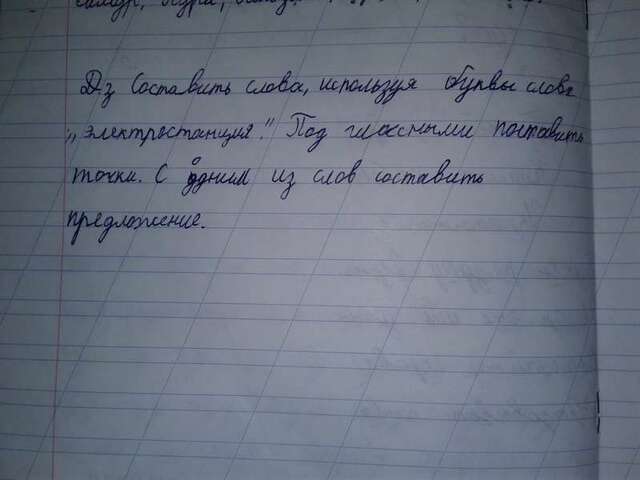 Дз Составить слова, используя буквы слова
„электростанция." Под гласными поставить
точки. С одним из слов составить
предложение.